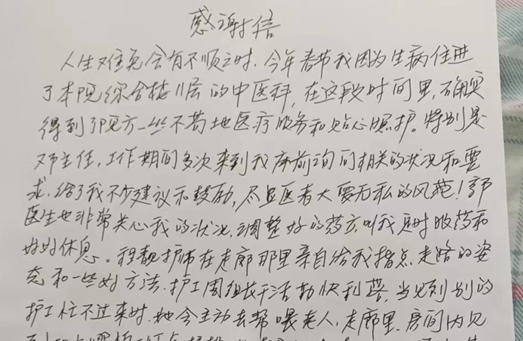 感谢信
人生难免会有不顺之时。今年春节我因为生病住进
了本院综合楼11层的中医科,在这段时间里,确实
得到了院方一些不菲地医疗服务和贴心照护。特别是
邓主任,工作期间多次来到我床前询问相关的状况和要
求,给了我不少建议和鼓励,尽显医者大爱无私的风范!郭
医生也非常关心我的状况,调整好的药方,叫我定时服药和
好好休息。程靓护师在走廊那里亲自给我指点走路的姿
态和一些好方法。护工周组长干活勤快利落,当见到别的
护工忙不过来时,她会主动去帮喂老人,走廊里、房间内见
到